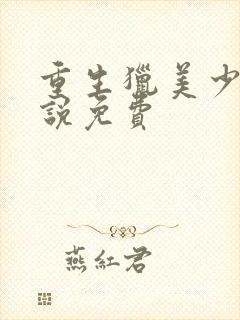 重生獵美少
說免費
燕紅君